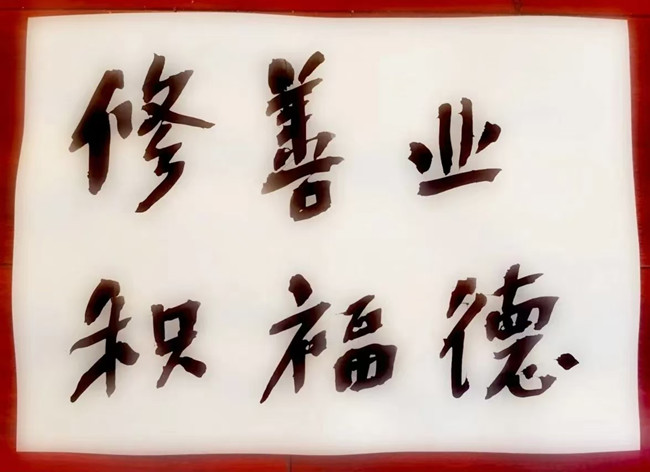 修善业
积福德